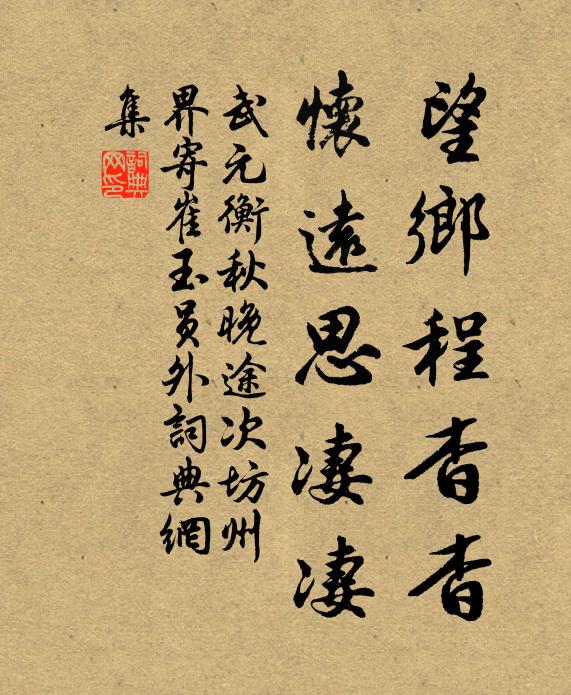 望鄉程杳杳
懷遠思凄凄
武元衡秋晚途次坊州
界寄崔玉員外詞典網
集
詞典網印